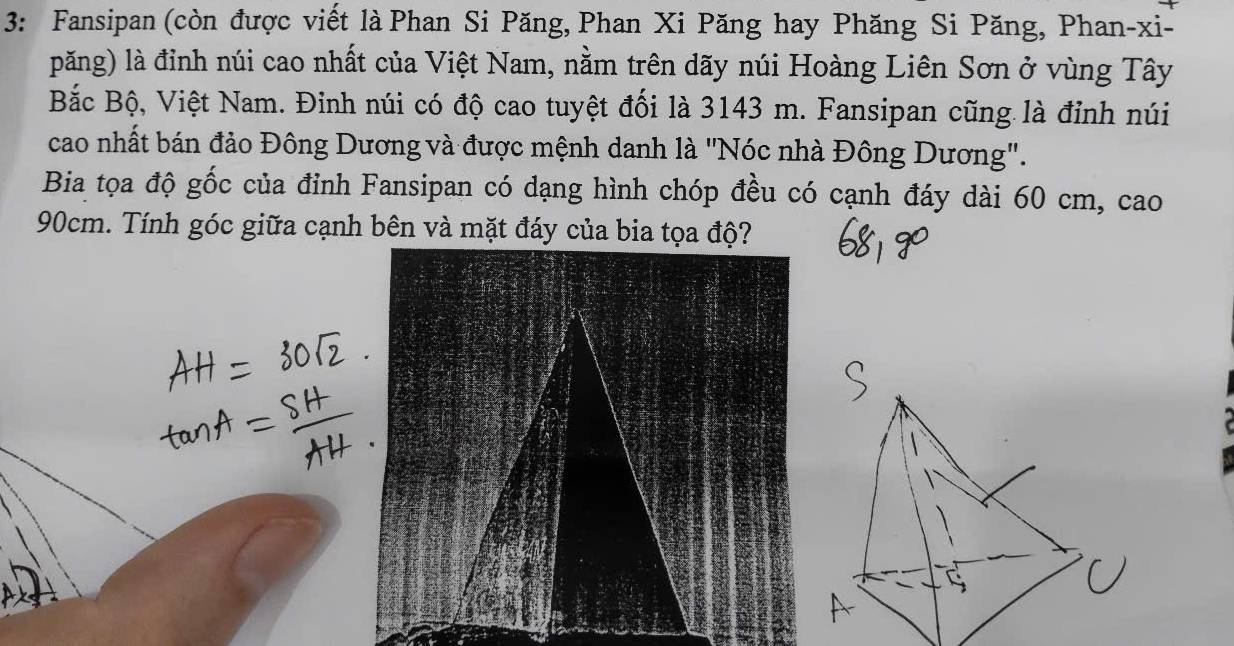 3: Fansipan (còn được viết là Phan Si Păng, Phan Xi Păng hay Phăng Si Păng, Phan-xi-
păng) là đỉnh núi cao nhất của Việt Nam, nằm trên dãy núi Hoàng Liên Sơn ở vùng Tây
Bắc Bộ, Việt Nam. Đỉnh núi có độ cao tuyệt đối là 3143 m. Fansipan cũng là đỉnh núi
cao nhất bán đảo Đông Dương và được mệnh danh là "Nóc nhà Đông Dương".
Bia tọa độ gốc của đỉnh Fansipan có dạng hình chóp đều có cạnh đáy dài 60 cm, cao
90cm. Tính góc giữa cạnh bên và mặt đáy của bia tọa độ?
68,90
AH = 30√2.
tanA = SH/AH.
S
A
C